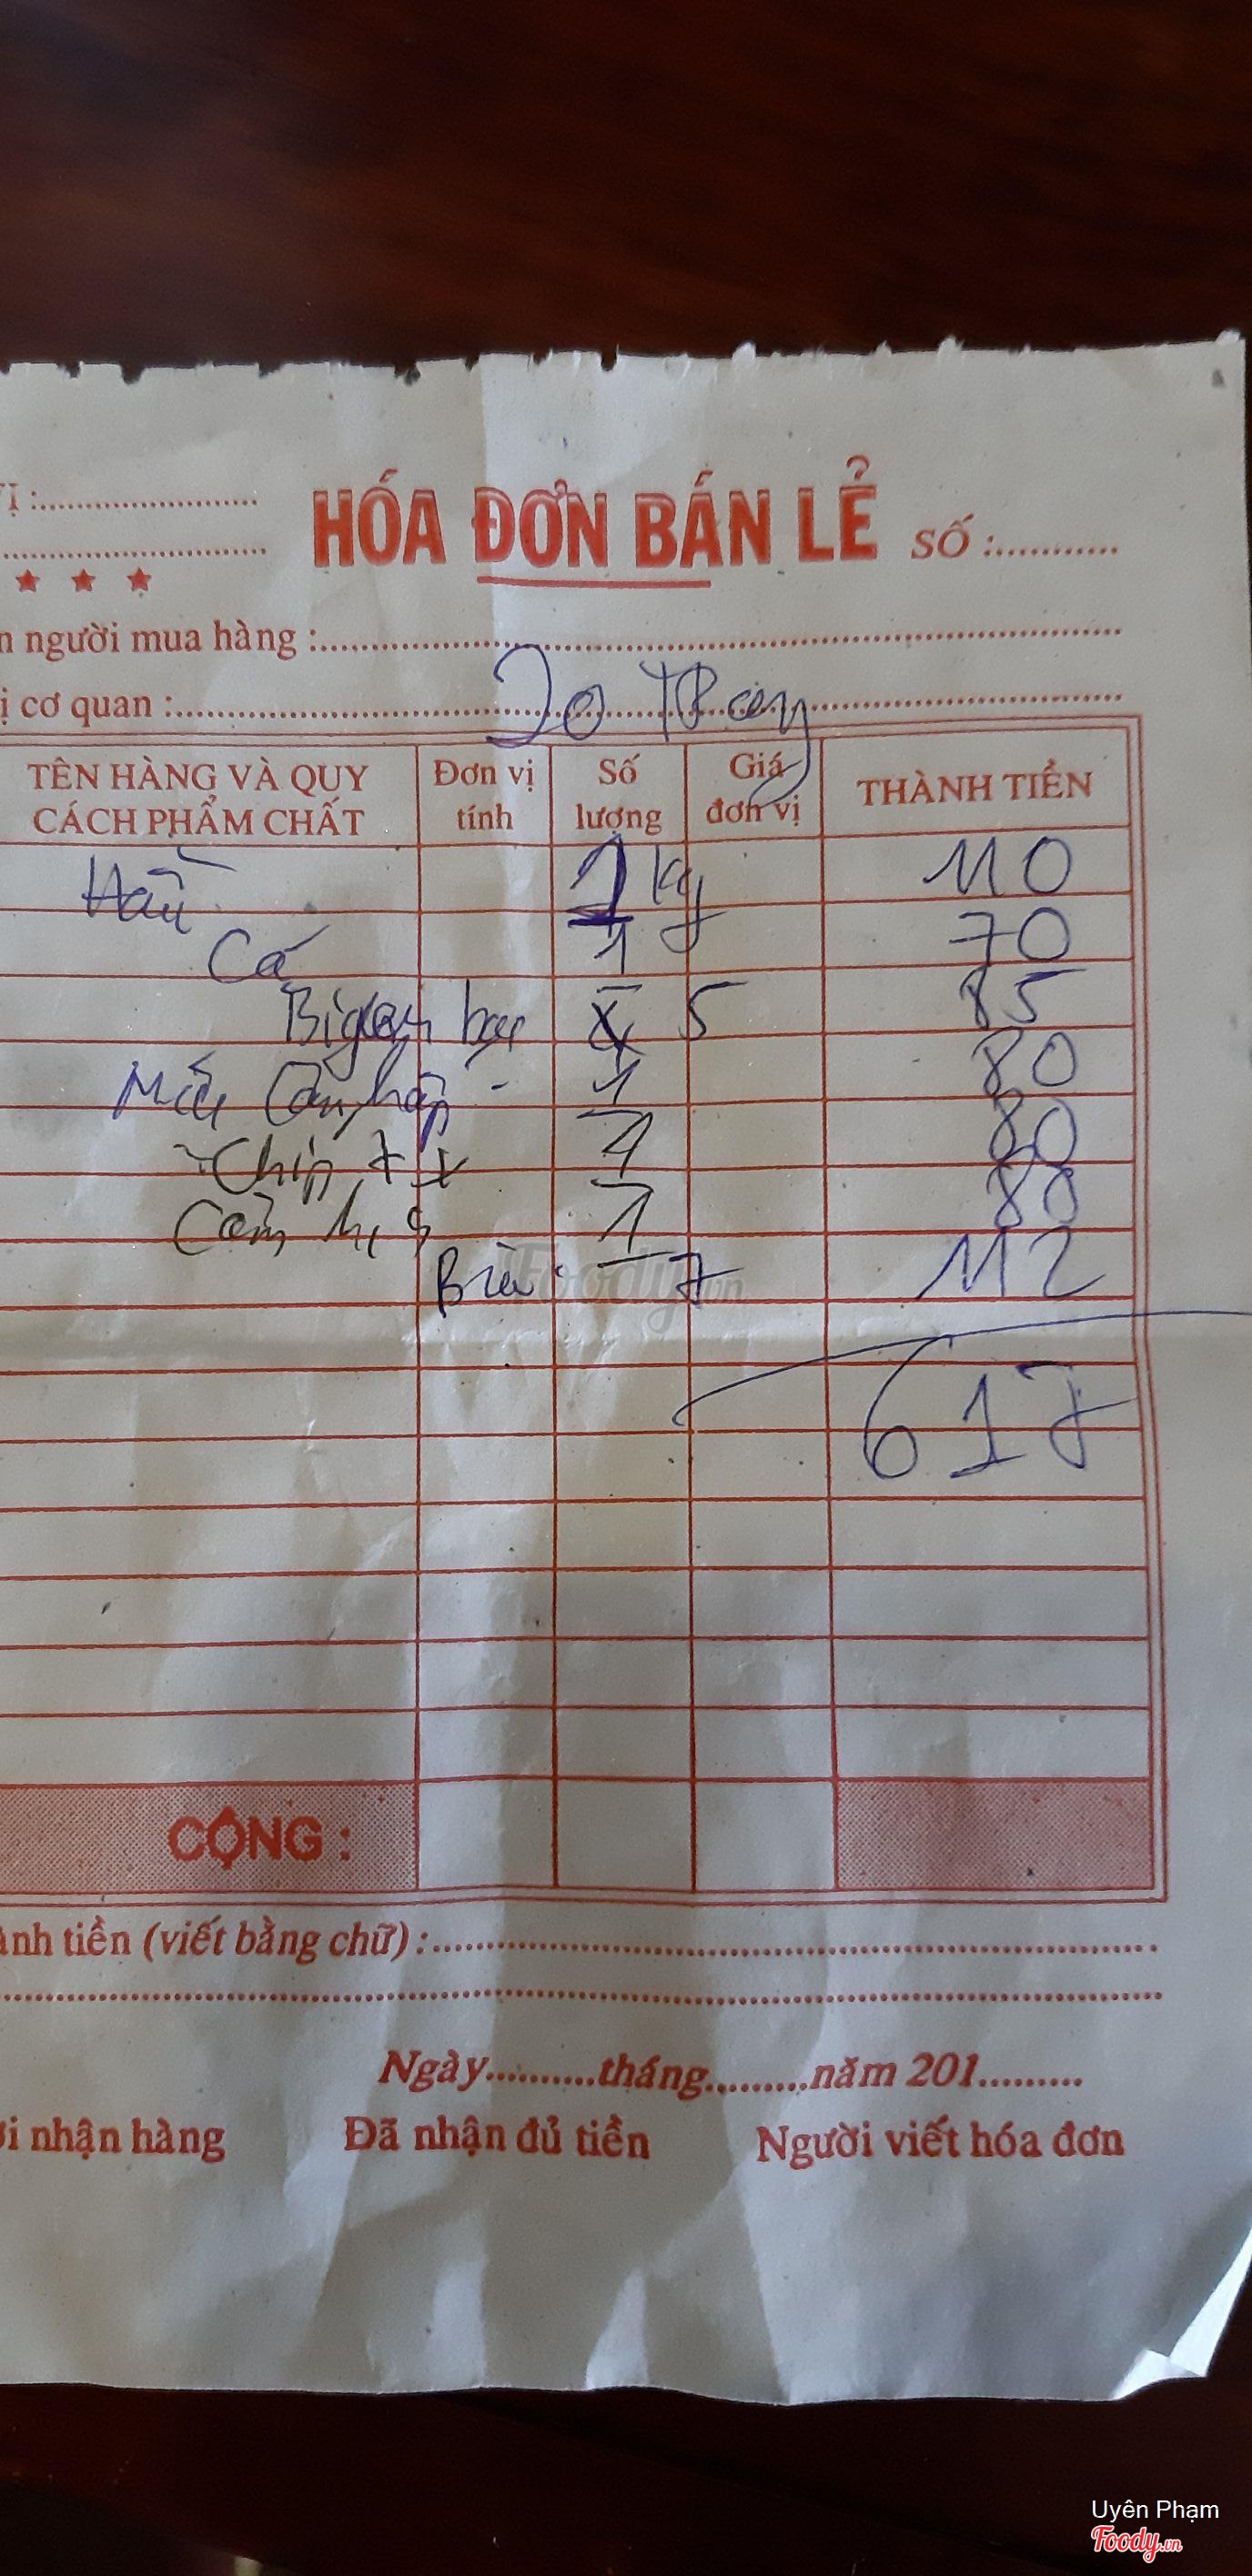 Ị :
HÓA ĐƠN BÁN LẺ SỐ :
n người mua hàng :
ị cơ quan :
TÊN HÀNG VÀ QUY CÁCH PHẨM CHẤT Đơn vị tính Số lượng Giá đơn vị THÀNH TIỀN
Hàu 1 kg 110
Cá 1 70
5 85
1 80
1 80
Cơm 1 80
Bia 7 112
617
CỘNG :
ành tiền (viết bằng chữ) :
Ngày tháng năm 201
i nhận hàng Đã nhận đủ tiền Người viết hóa đơn
Foody.vn
Uyên Phạm
Foody.vn